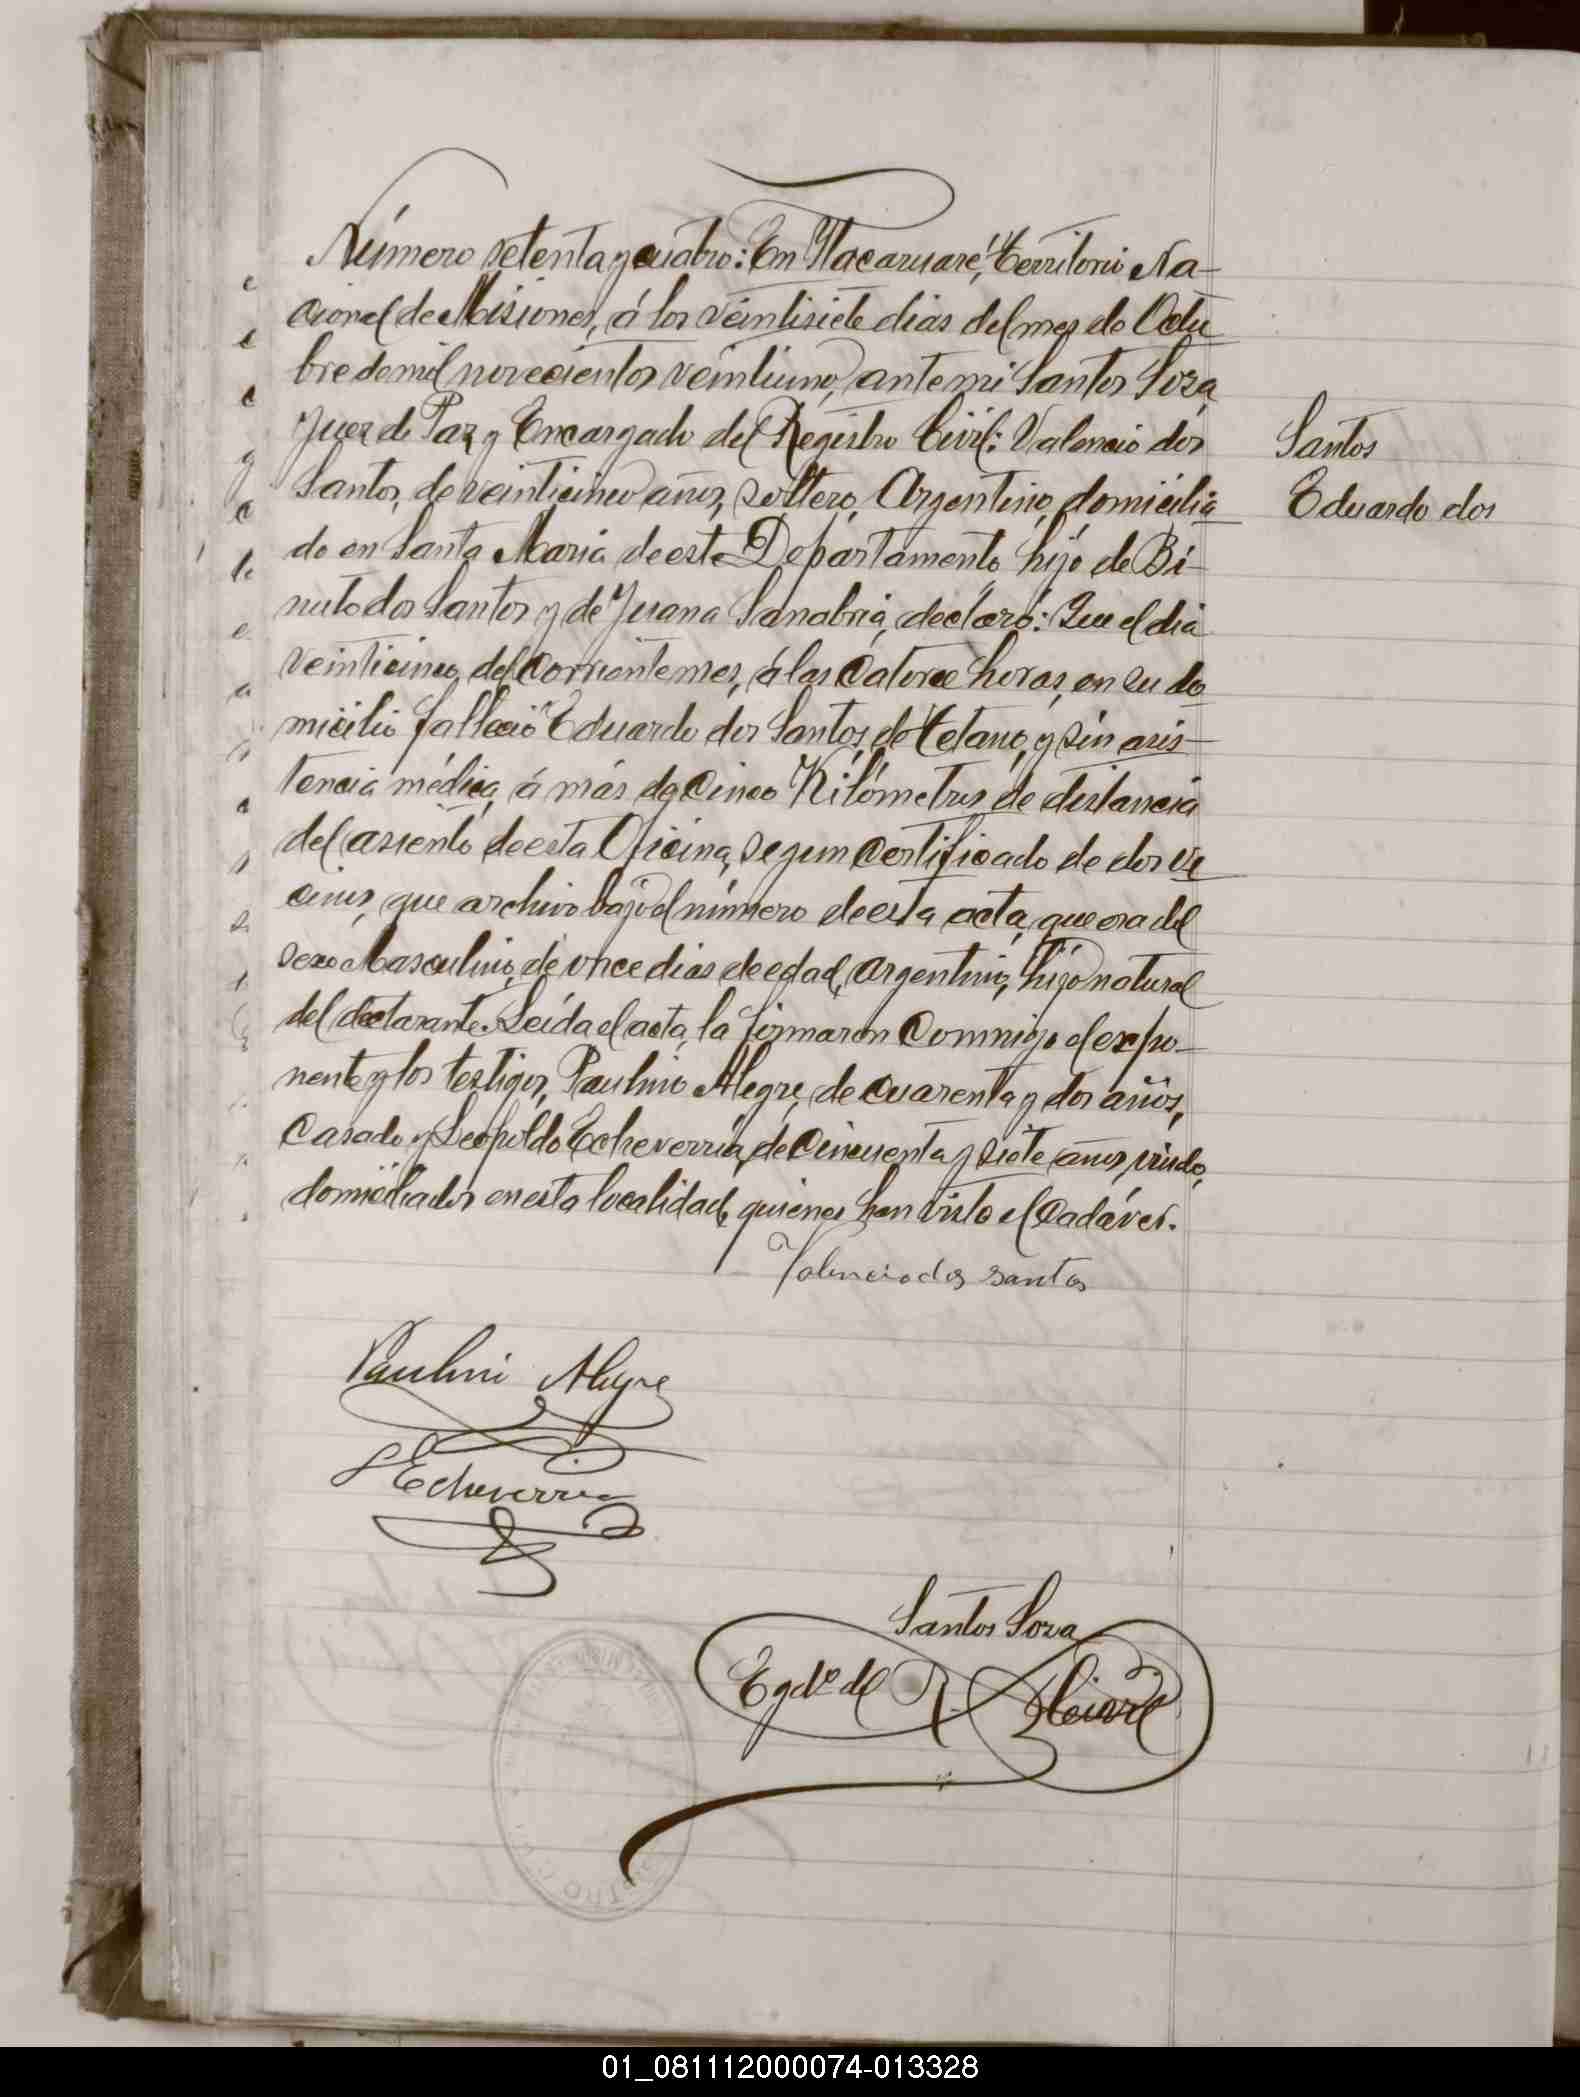 Número setenta y cuatro: En Itacaruaré, Territorio Na-
cional de Misiones, á los veintisiete dias del mes de Octu
bre de mil novecientos veintiuno, ante mi Santos Soza
Juez de Paz y Encargado del Registro Civil: Valencio dos
Santos, de veinticinco años, soltero, Argentino, domicilia
do en Santa Maria de este Departamento, hijo de Bi-
nuto dos Santos y de Juana Sanabria, declaró: Que el dia
veinticinco del corriente mes, á las catorce horas, en su do
micilio falleció Eduardo dos Santos, de tetano, y sin asis-
tencia médica, á más de cinco Kilómetros de distancia
del asiento de esta Oficina, segun certificado de dos ve
cinos, que archivo bajo el número de esta acta, que era del
sexo Masculino, de once dias de edad, argentino, hijo natural
del declarante. Leída el acta, la firmaron conmigo el expo-
nente y los testigos, Paulino Alegre, de cuarenta y dos años,
casado y Leopoldo Echeverría, de cincuenta y siete años, viudo,
domiciliados en esta localidad, quienes han visto el cadáver.
Santos
Eduardo dos
Valencio dos santos
Paulino Alegre
L Echeverria
Santos Soza
Egdo. del R. Civil
01_081112000074-013328